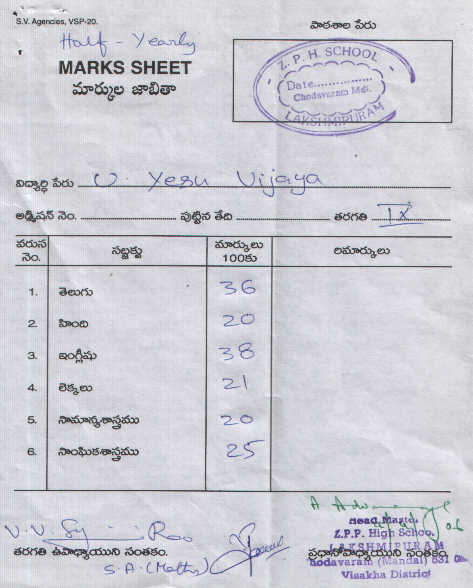 S.V. Agencies, VSP-20.
పాఠశాల పేరు
Half - Yearly
MARKS SHEET
మార్కుల జాబితా
Z. P. H. SCHOOL
Date................
Chodavaram Mdl.
LAKSHMIPURAM
విద్యార్థి పేరు V. Yesu Vijaya
అడ్మిషన్ నెం. పుట్టిన తేది తరగతి IX
వరుస నెం. సబ్జక్టు మార్కులు 100కు రిమార్కులు
1. తెలుగు 36
2. హింది 20
3. ఇంగ్లీషు 38
4. లెక్కలు 21
5. సామాన్యశాస్త్రము 20
6. సాంఘికశాస్త్రము 25
Head Master
Z.P.P. High School
LAKSHMIPURAM
తరగతి ఉపాధ్యాయుని సంతకం. ప్రధానోపాధ్యాయుని సంతకం
S.A. (Maths)
Chodavaram (Mandal) 531 0
Visakha District